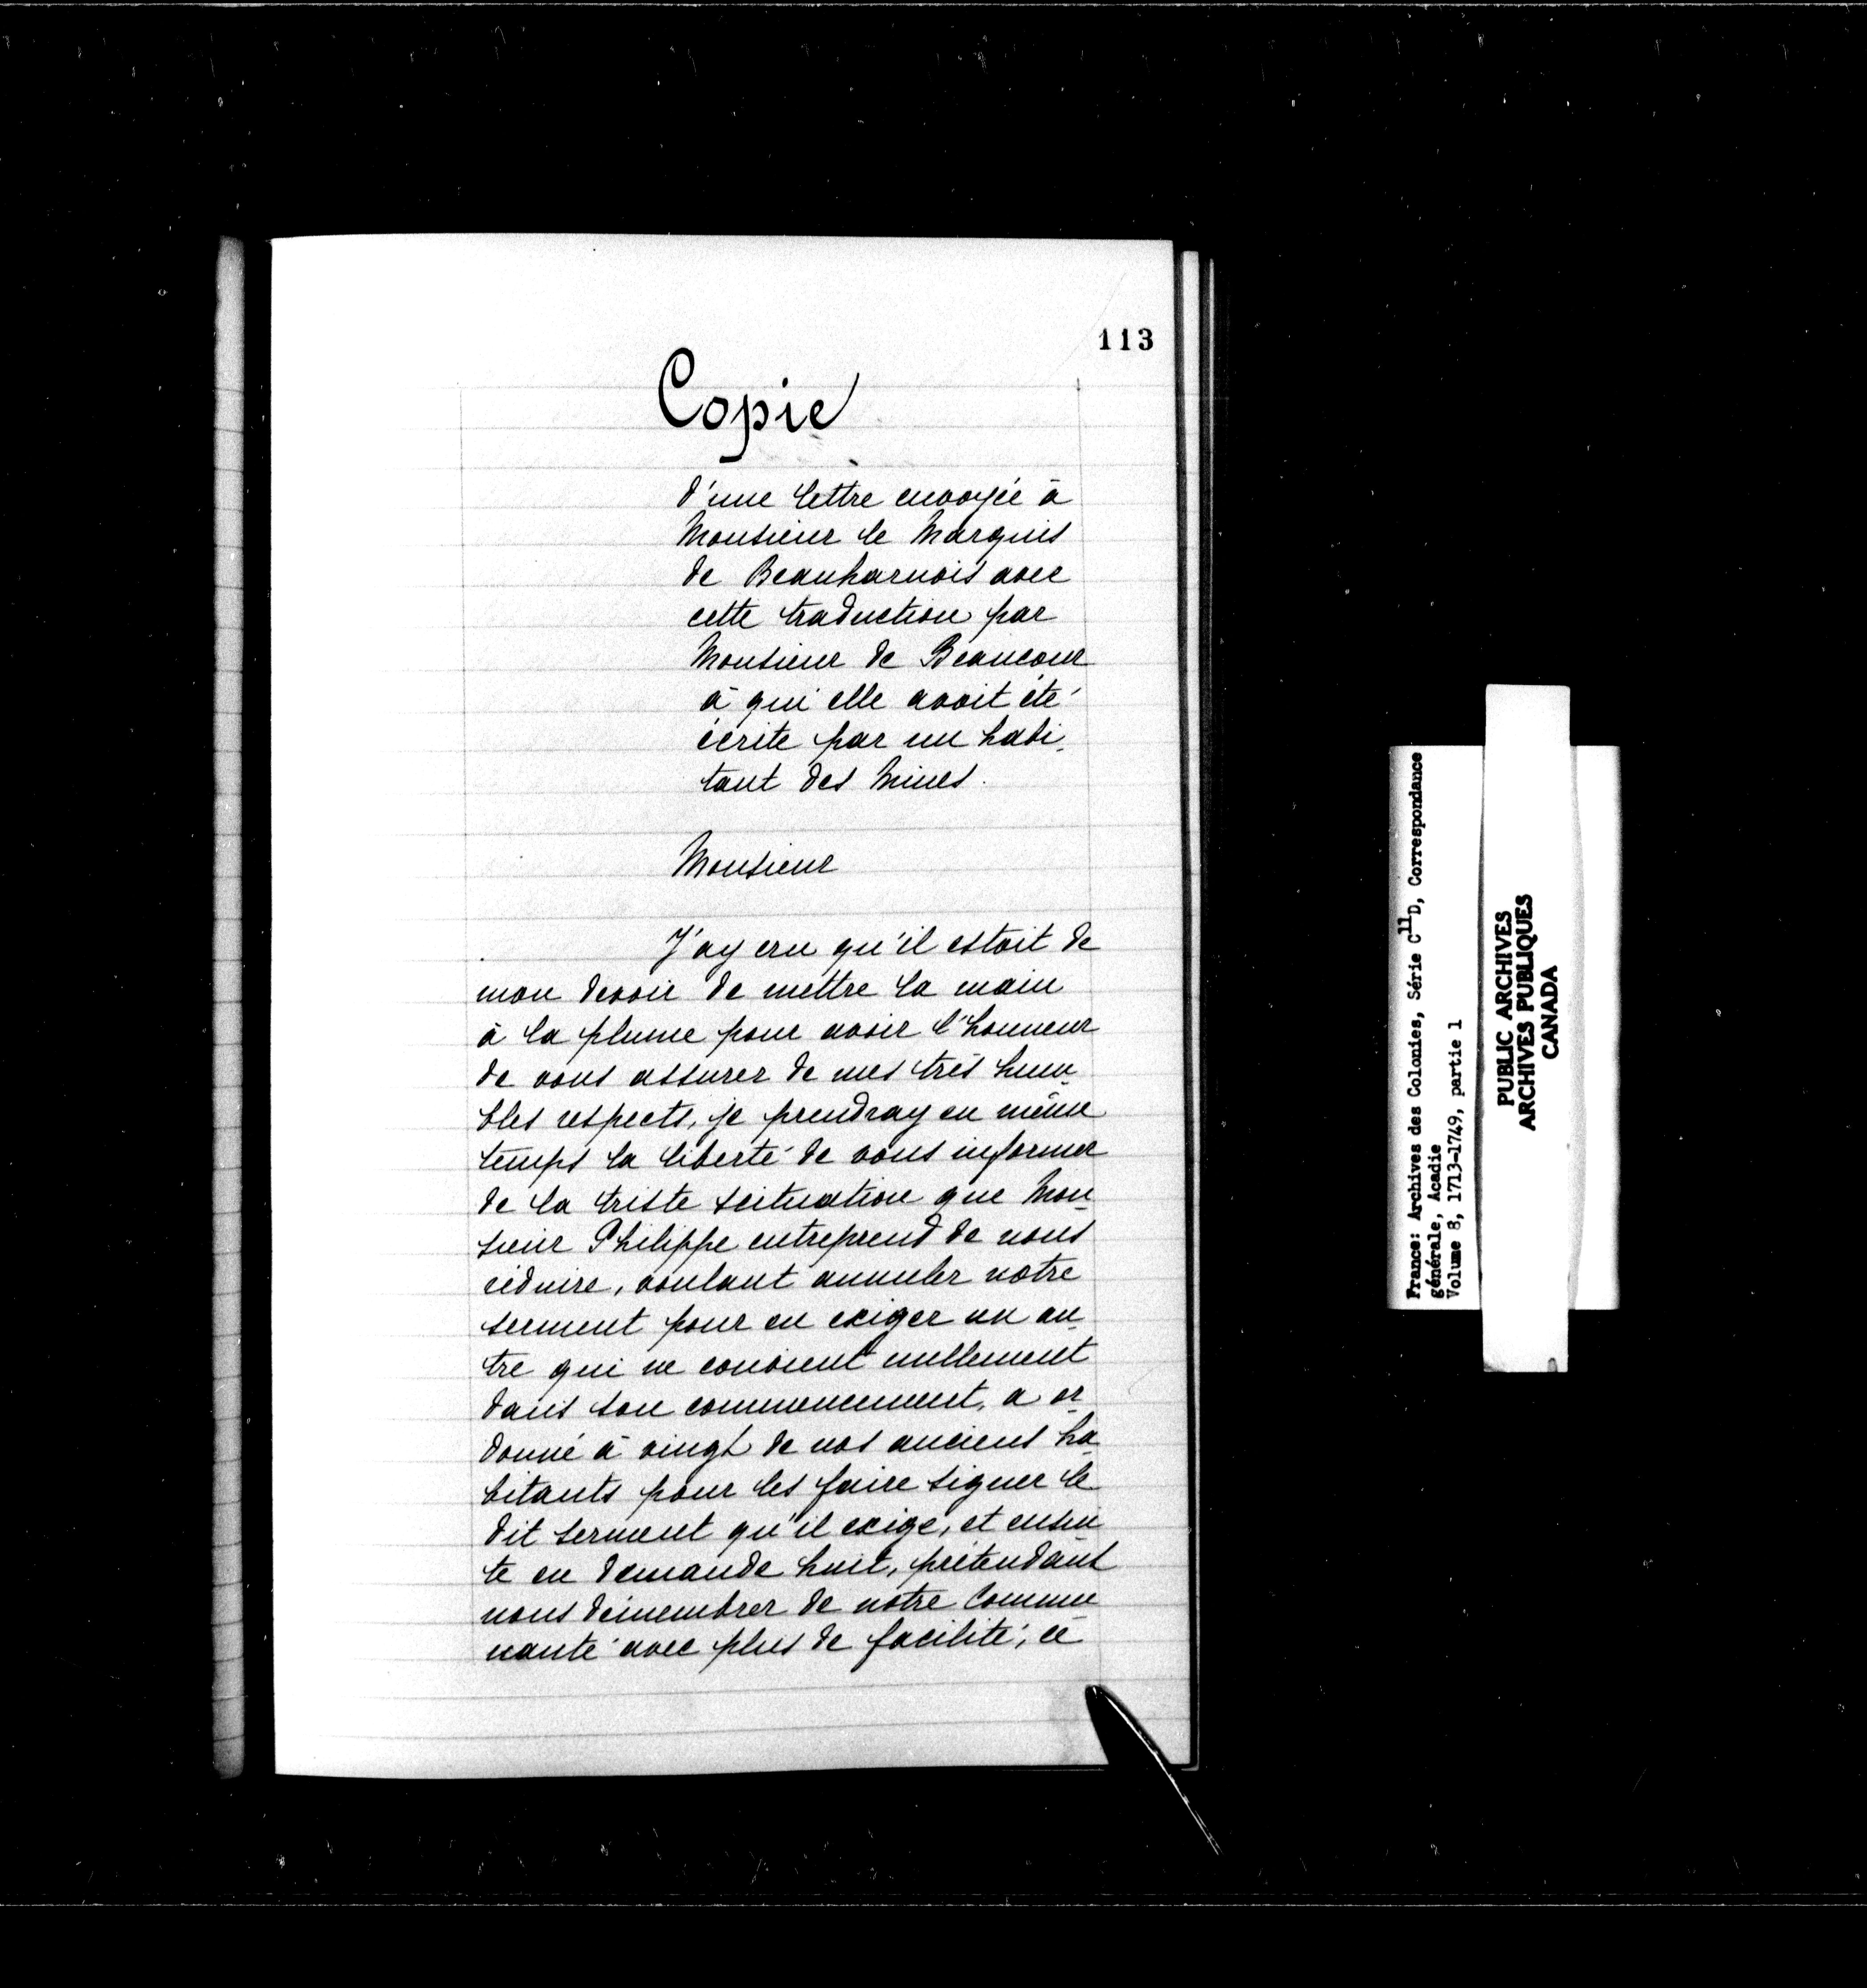 113
Copie
d'une lettre envoyée à
Monsieur le Marquis
de Beauharnois avec
cette traduction par
Monsieur de Beaucour
à qui elle avoit été
écrite par un habi-
tant des Mines.
Monsieur
J'ay cru qu'il estoit de
mon devoir de mettre la main
à la plume pour avoir l'honneur
de vous assurer de mes très hum-
bles respects, je prendray en même
temps la liberté de vous informer
de la triste scituation que Mon-
sieur Philippe entreprend de nous
réduire, voulant annuler notre
serment pour en exiger un au-
tre qui ne convient nullement
dans son commencement, a or-
donné à vingt de nos anciens ha-
bitants pour les faire signer le
dit serment qu'il exige, et ensui-
te en demande huit, prétendant
nous démembrer de notre Commu-
nauté avec plus de facilité; ce
France: Archives des Colonies, Série C11D, Correspondance
générale, Acadie
Volume 8, 1713-1749, partie 1
PUBLIC ARCHIVES
ARCHIVES PUBLIQUES
CANADA